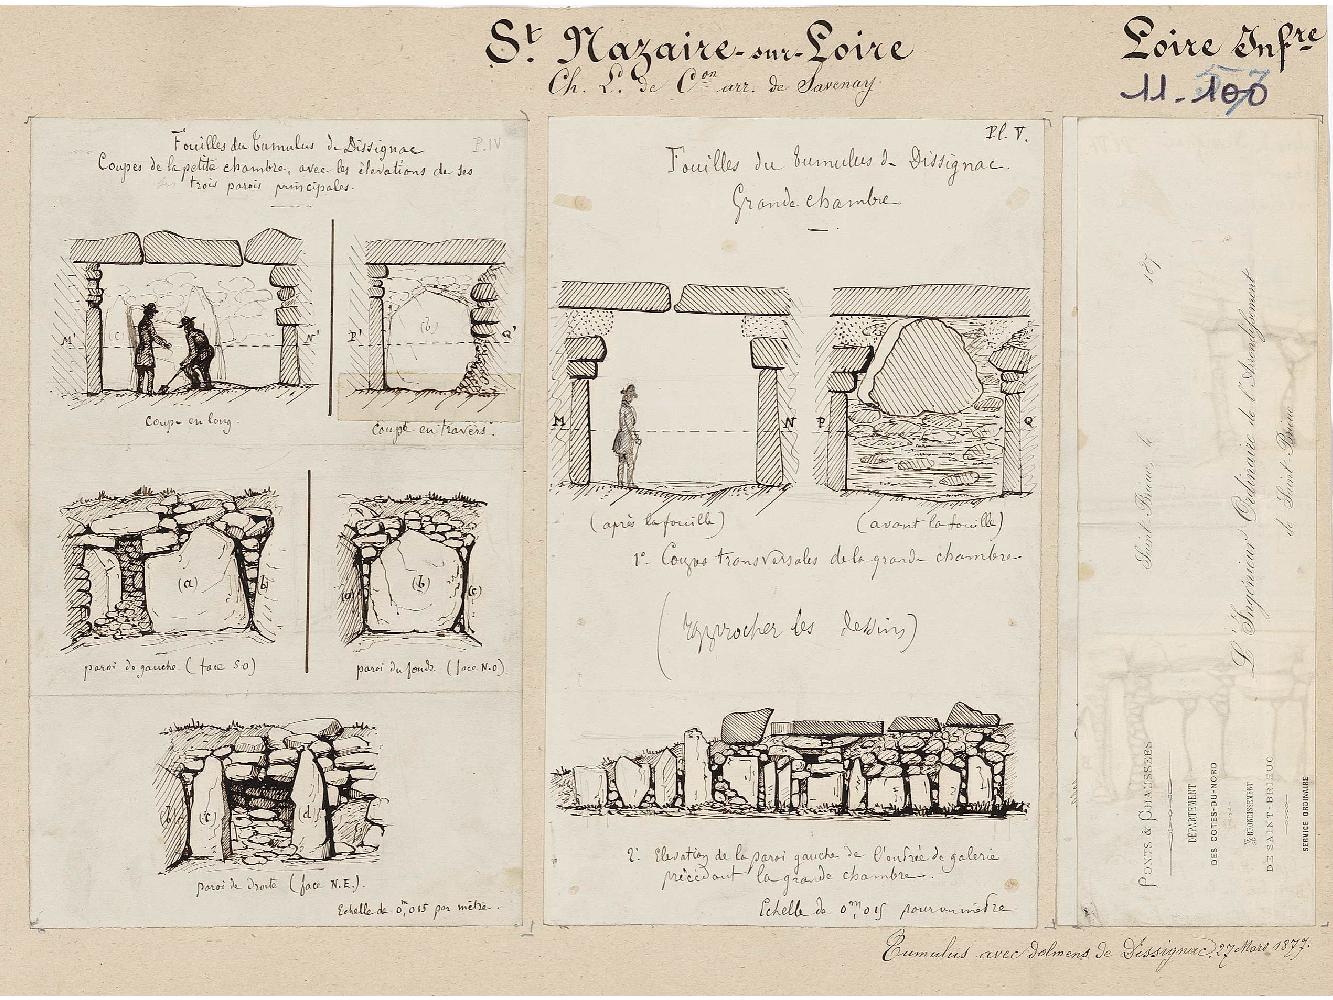 St. Nazaire-sur-Loire
Ch. L. de Con arr. de Savenay
Loire Infre
11-100
57
Fouilles du Tumulus de Dissignac
P.IV
Coupes de la petite chambre, avec les élévations de ses
trois parois principales.
M'
N'
P'
(b)
Q'
Coupe en long.
Coupe en travers.
(a)
b
(a)
(b)
(c)
paroi de gauche. (face S.O)
paroi du fond. (face N.O)
b
(c)
d
paroi de droite (face N.E.).
Echelle de 0m,015 par mètre.
Pl. V.
Fouilles du Tumulus de Dissignac.
Grande chambre
M
N
P
Q
(après la fouille)
(avant la fouille)
1° Coupes transversales de la grande chambre.
(rapprocher les dessins)
2° Elevation de la paroi gauche de l'entrée de galerie
précédant la grande chambre.
Echelle de 0m,015 pour un mètre
PONTS & CHAUSSÉES
DÉPARTEMENT
DES CÔTES-DU-NORD
ARRONDISSEMENT
DE SAINT-BRIEUC
SERVICE ORDINAIRE
Saint-Brieuc, le
187
L'Ingénieur Ordinaire de l'Arrondissement
de Saint-Brieuc
Tumulus avec dolmens de Dissignac. 27 Mars 1877.